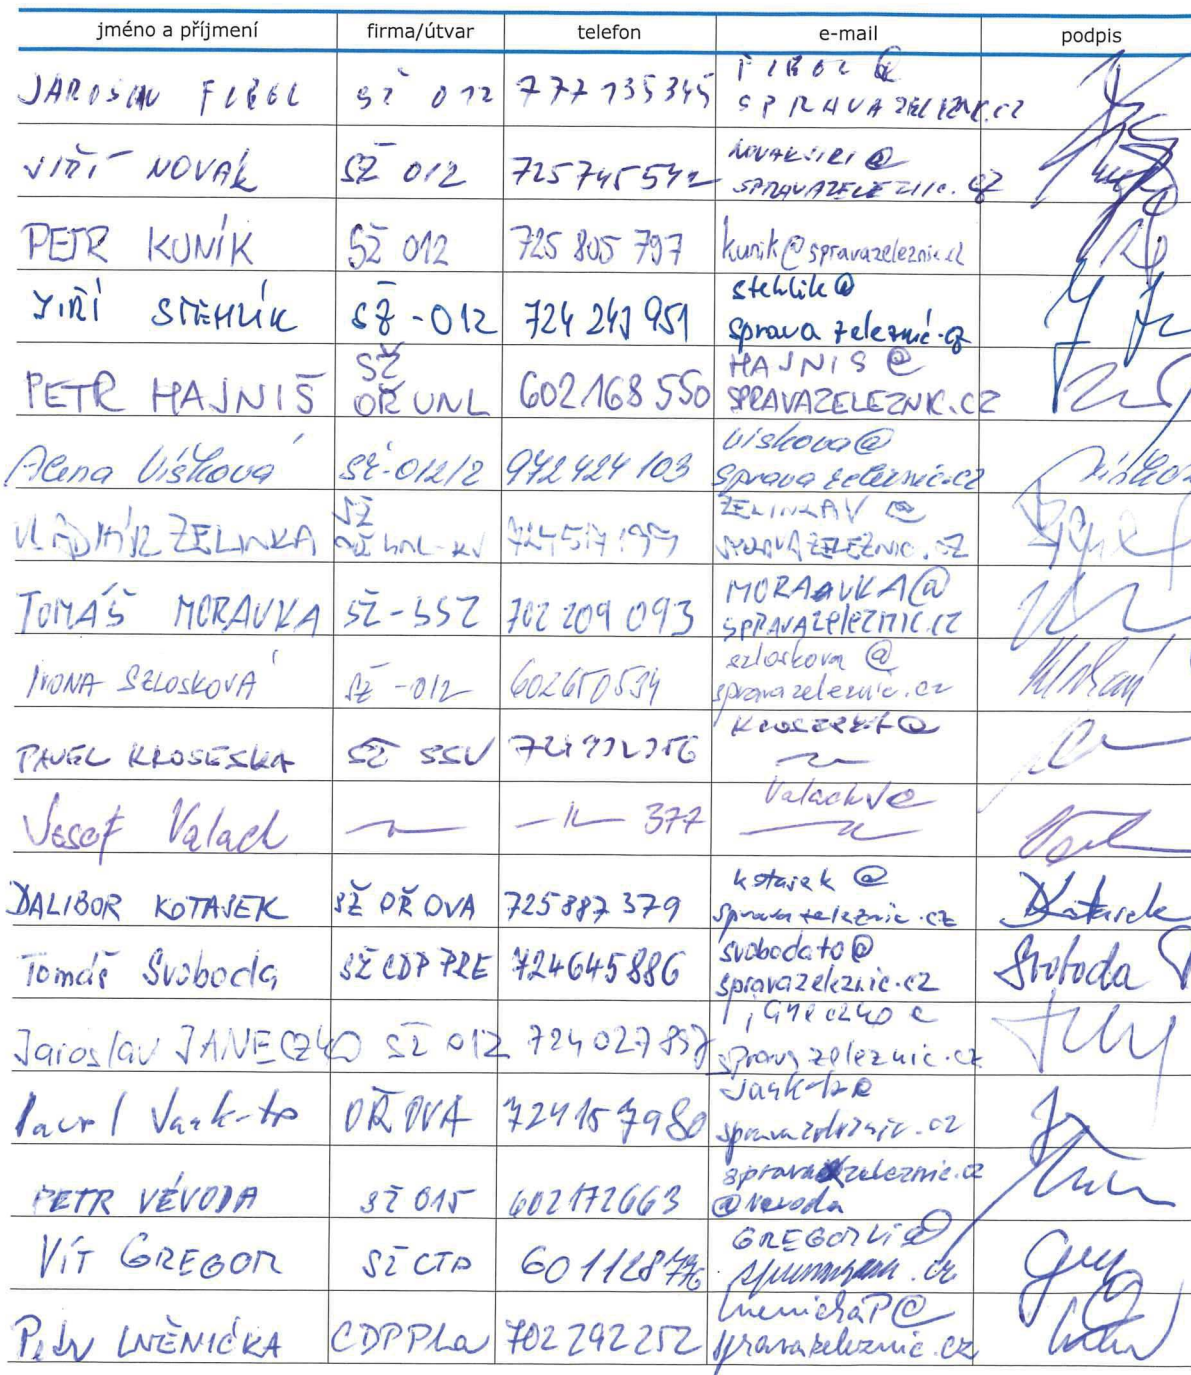 jméno a příjmení firma/útvar telefon e-mail podpis
JAROSLAV FIBGL SŽ 012 777 135 345 FIBGL @
SPRAVAZELEZNIC.CZ
JIŘÍ NOVÁK SŽ 012 725745542 NOVAKJIRI @
SPRAVAZELEZNIC.CZ
PETR KUNÍK SŽ 012 725 805 797 kunik@spravazeleznic.cz
JIŘÍ STEHLÍK SŽ-012 724 241 951 stehlik@
spravazeleznic.cz
PETR HAJNIŠ SŽ
OŘ UNL 602 168 550 HAJNIS @
SPRAVAZELEZNIC.CZ
Alena Víšková SŽ-012/2 972 424 103 viskova@
spravazeleznic.cz víšková
VLADIMÍR ZELINKA SŽ ZELINKAV @
SPRAVAZELEZNIC.CZ
TOMÁŠ MORAVKA SŽ-SSZ 702 209 093 MORAVKA@
SPRAVAZELEZNIC.CZ
IVONA SZLOSKOVÁ SŽ-012 602650534 szloskova @
spravazeleznic.cz
PAVEL KROSESKA SŽ SSV @
Josef Valach -"- 377 ValachJ@
DALIBOR KOTASEK SŽ OŘ OVA 725 887 379 kotasek @
spravazeleznic.cz Kotasek
Tomáš Svoboda SŽ CDP PRE 724645886 svobodato@
spravazeleznic.cz Svoboda
Jaroslav JANECZKO SŽ 012 724 027 857 janeczko@
spravazeleznic.cz
OŘ OVA 724 157 980
spravazeleznic.cz
PETR VÉVODA SŽ 015 602172663 spravazeleznic.cz
@vevoda
VÍT GREGOR SŽ CTD GREGORVI@
Petr LNĚNIČKA CDP Pha 702 292 252 lnenickaP@
spravazeleznic.cz